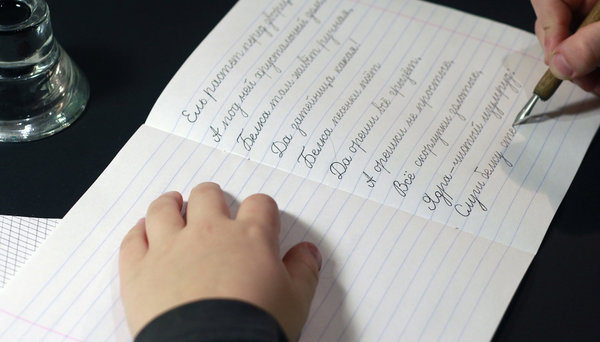 Ель растёт перед дворцом,
А под ней хрустальный дом,
Белка там живёт ручная,
Да затейница какая!
Белка песенки поёт
Да орешки всё грызёт,
А орешки не простые,
Всё скорлупки золотые,
Ядра-чистый изумруд;
Слуги белку сте